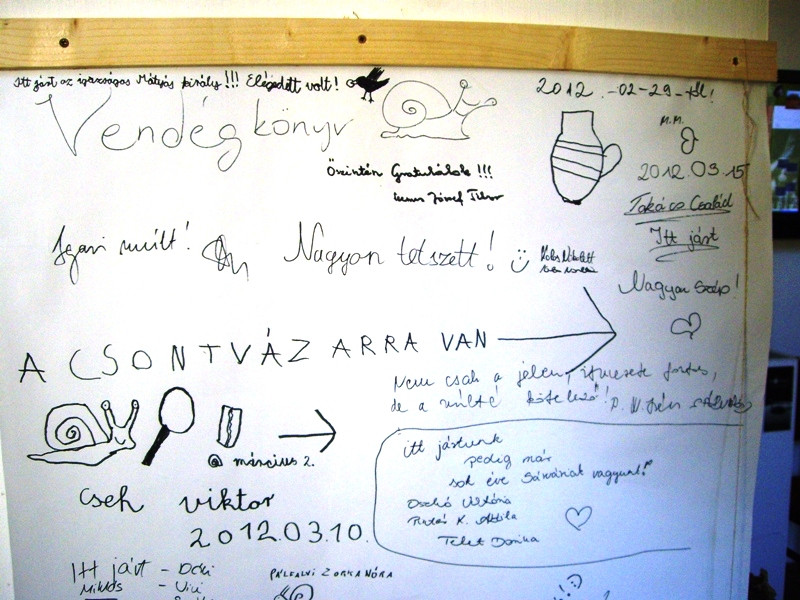 Itt járt az igazságos Mátyás király!!! Elégedett volt!
Vendég könyv
2012.-02-29-től!
Őszintén Gratulálok!!!
József Tibor
M.M.
2012.03.15
Takács Család
Itt járt
Nagyon Szép!
Igazi múlt!
Nagyon tetszett!
A CSONTVÁZ ARRA VAN
Nem csak a jelen, ismerete fontos,
de a múlté kötelező!
@ március 2.
Cseh viktor
2012.03.10.
itt jártunk
pedig már
sok éve Sárváriak vagyunk!
Viktória
K. Attila
Telet Dorika
Itt járt - Dóri
Miklós - Vivi
PÁLFALVI ZORKA NÓRA